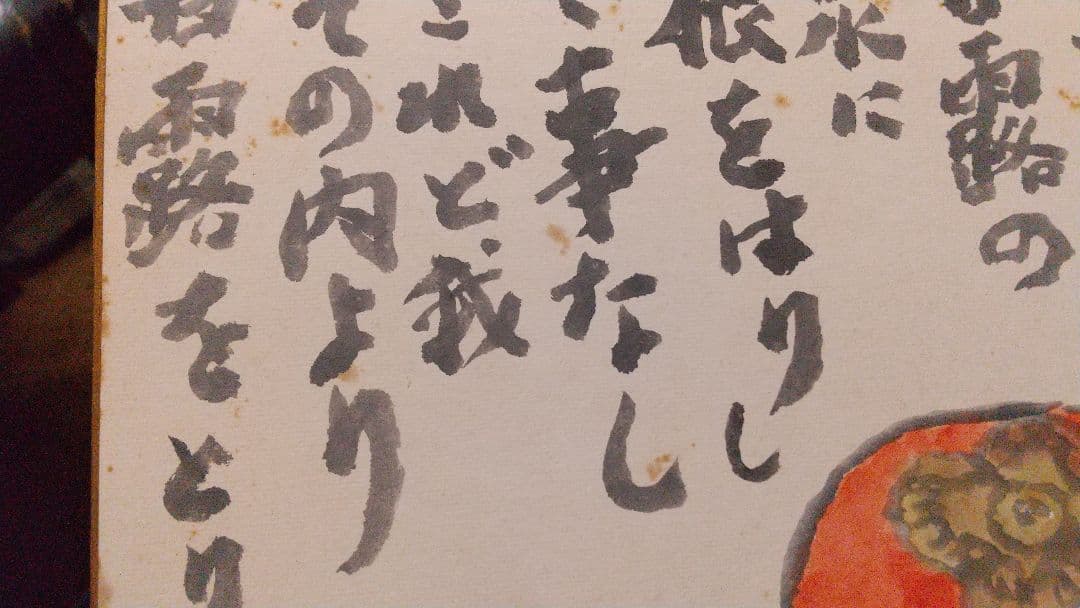 露の
水に
根をはりし
事なし
されど我
その内より
甘露をとり